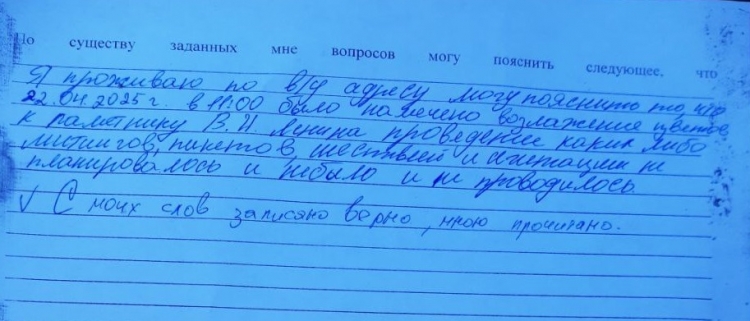 По существу заданных мне вопросов могу пояснить следующее, что
Я проживаю по в/у адресу могу пояснить то, что
22.04.2025 г. в 11:00 было намечено возложение цветов
к памятнику В.И. Ленина проведение каких либо
митингов, пикетов, шествий и агитации не
планировалось и не было и не проводилось.
√ С моих слов записано верно, мною прочитано.